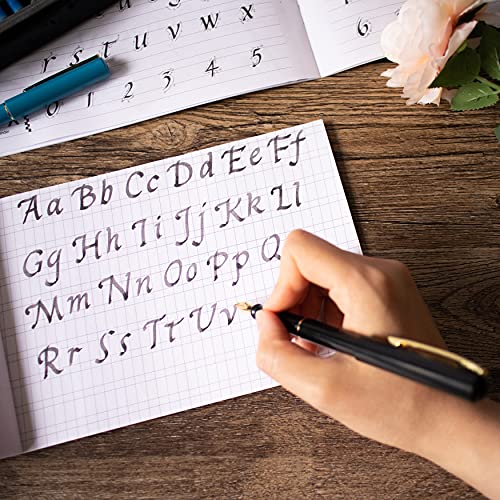 r s t u v w x
0 1 2 3 4 5
r s t
6
Aa Bb Cc Dd Ee Ff
Gg Hh Ii Jj Kk Ll
Mm Nn Oo Pp Q
Rr Ss Tt Uv